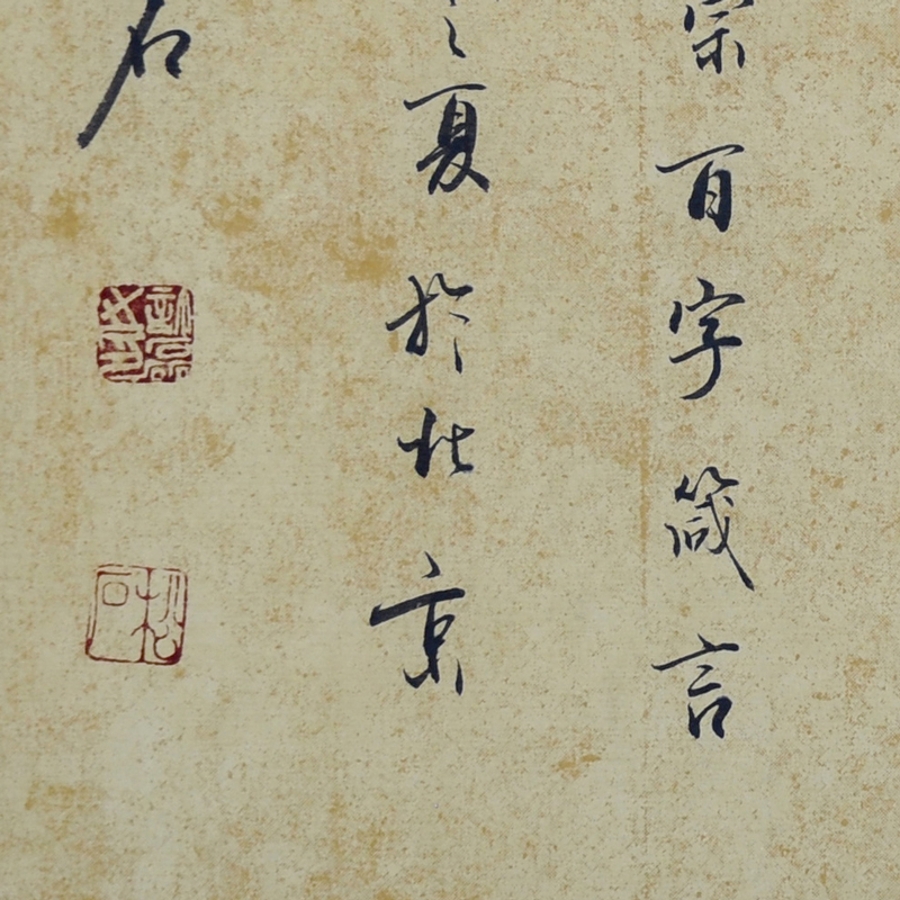 宗百字箴言
之夏於北京
石
松石